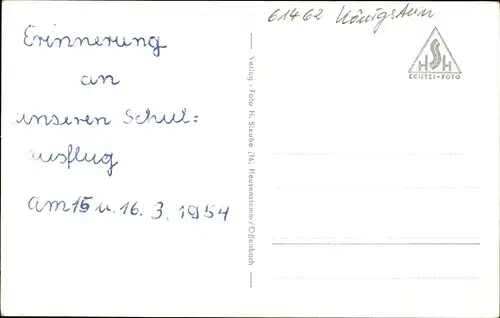 61462 Königstein
Erinnerung
an
unseren Schul=
ausflug
am 15 u. 16. 3. 1954
HSH
ECHTES-FOTO
Verlag - Foto H. (16) /Offenbach